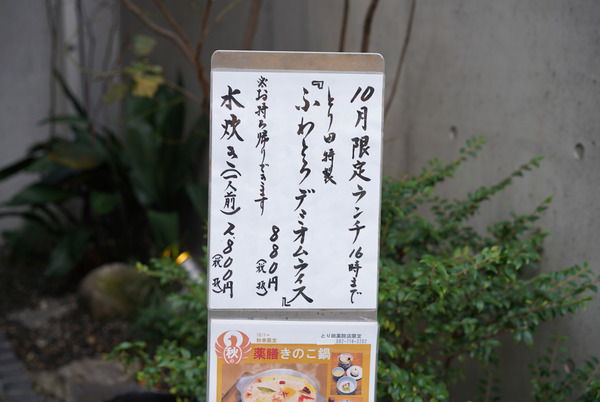 10月限定ランチ16時まで
とり田特製
『ふわとろデミオムライス』
※お持ち帰りできます
880円
(税抜)
水炊き(一人前)2,800円
(税抜)
秋
薬膳きのこ鍋
とり田薬院店限定